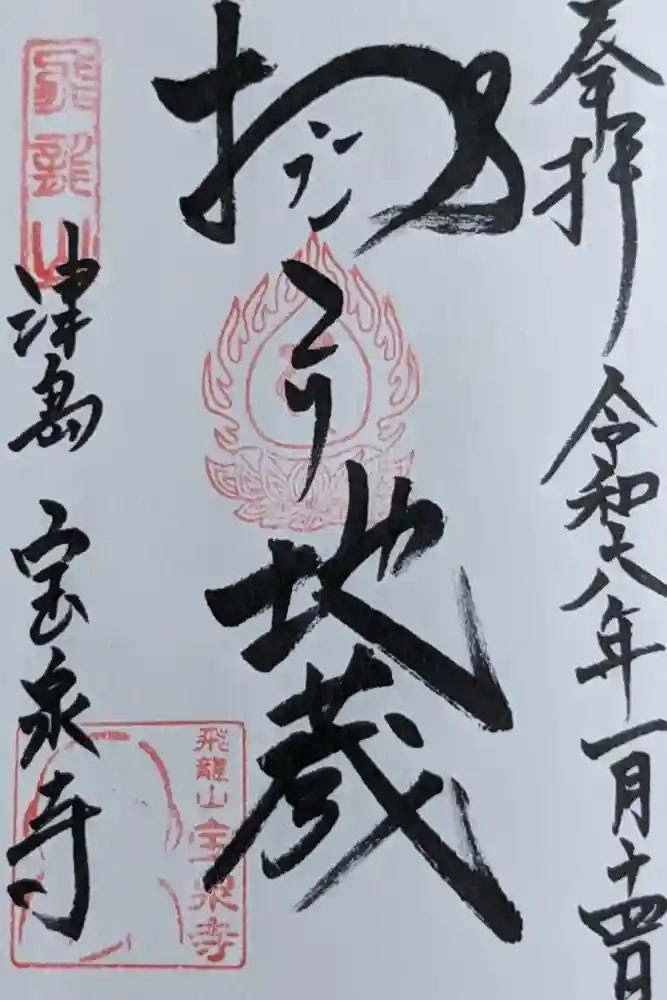 奉拝
令和八年一月十四日
おこり地蔵
飛龍山
津島 宝泉寺
飛龍山 宝泉寺